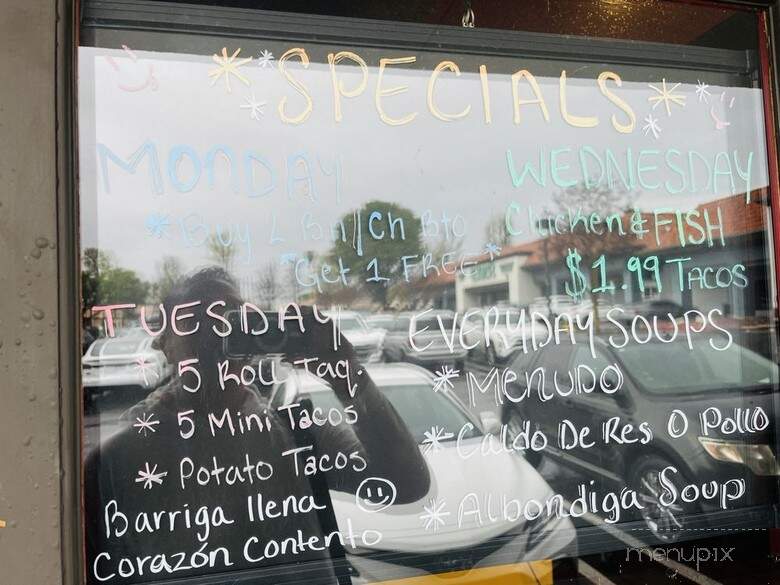 *SPECIALS*
MONDAY
*Buy 1 Bn/Ch Bto
*Get 1 FREE*
TUESDAY
* 5 Roll Taq.
* 5 Mini Tacos
* Potato Tacos
Barriga llena ☺
Corazón Contento
WEDNESDAY
Chicken & FISH
$1.99 TACOS
EVERYDAY SOUPS
* MENUDO
* Caldo De Res O Pollo
* Albondiga Soup
menupix